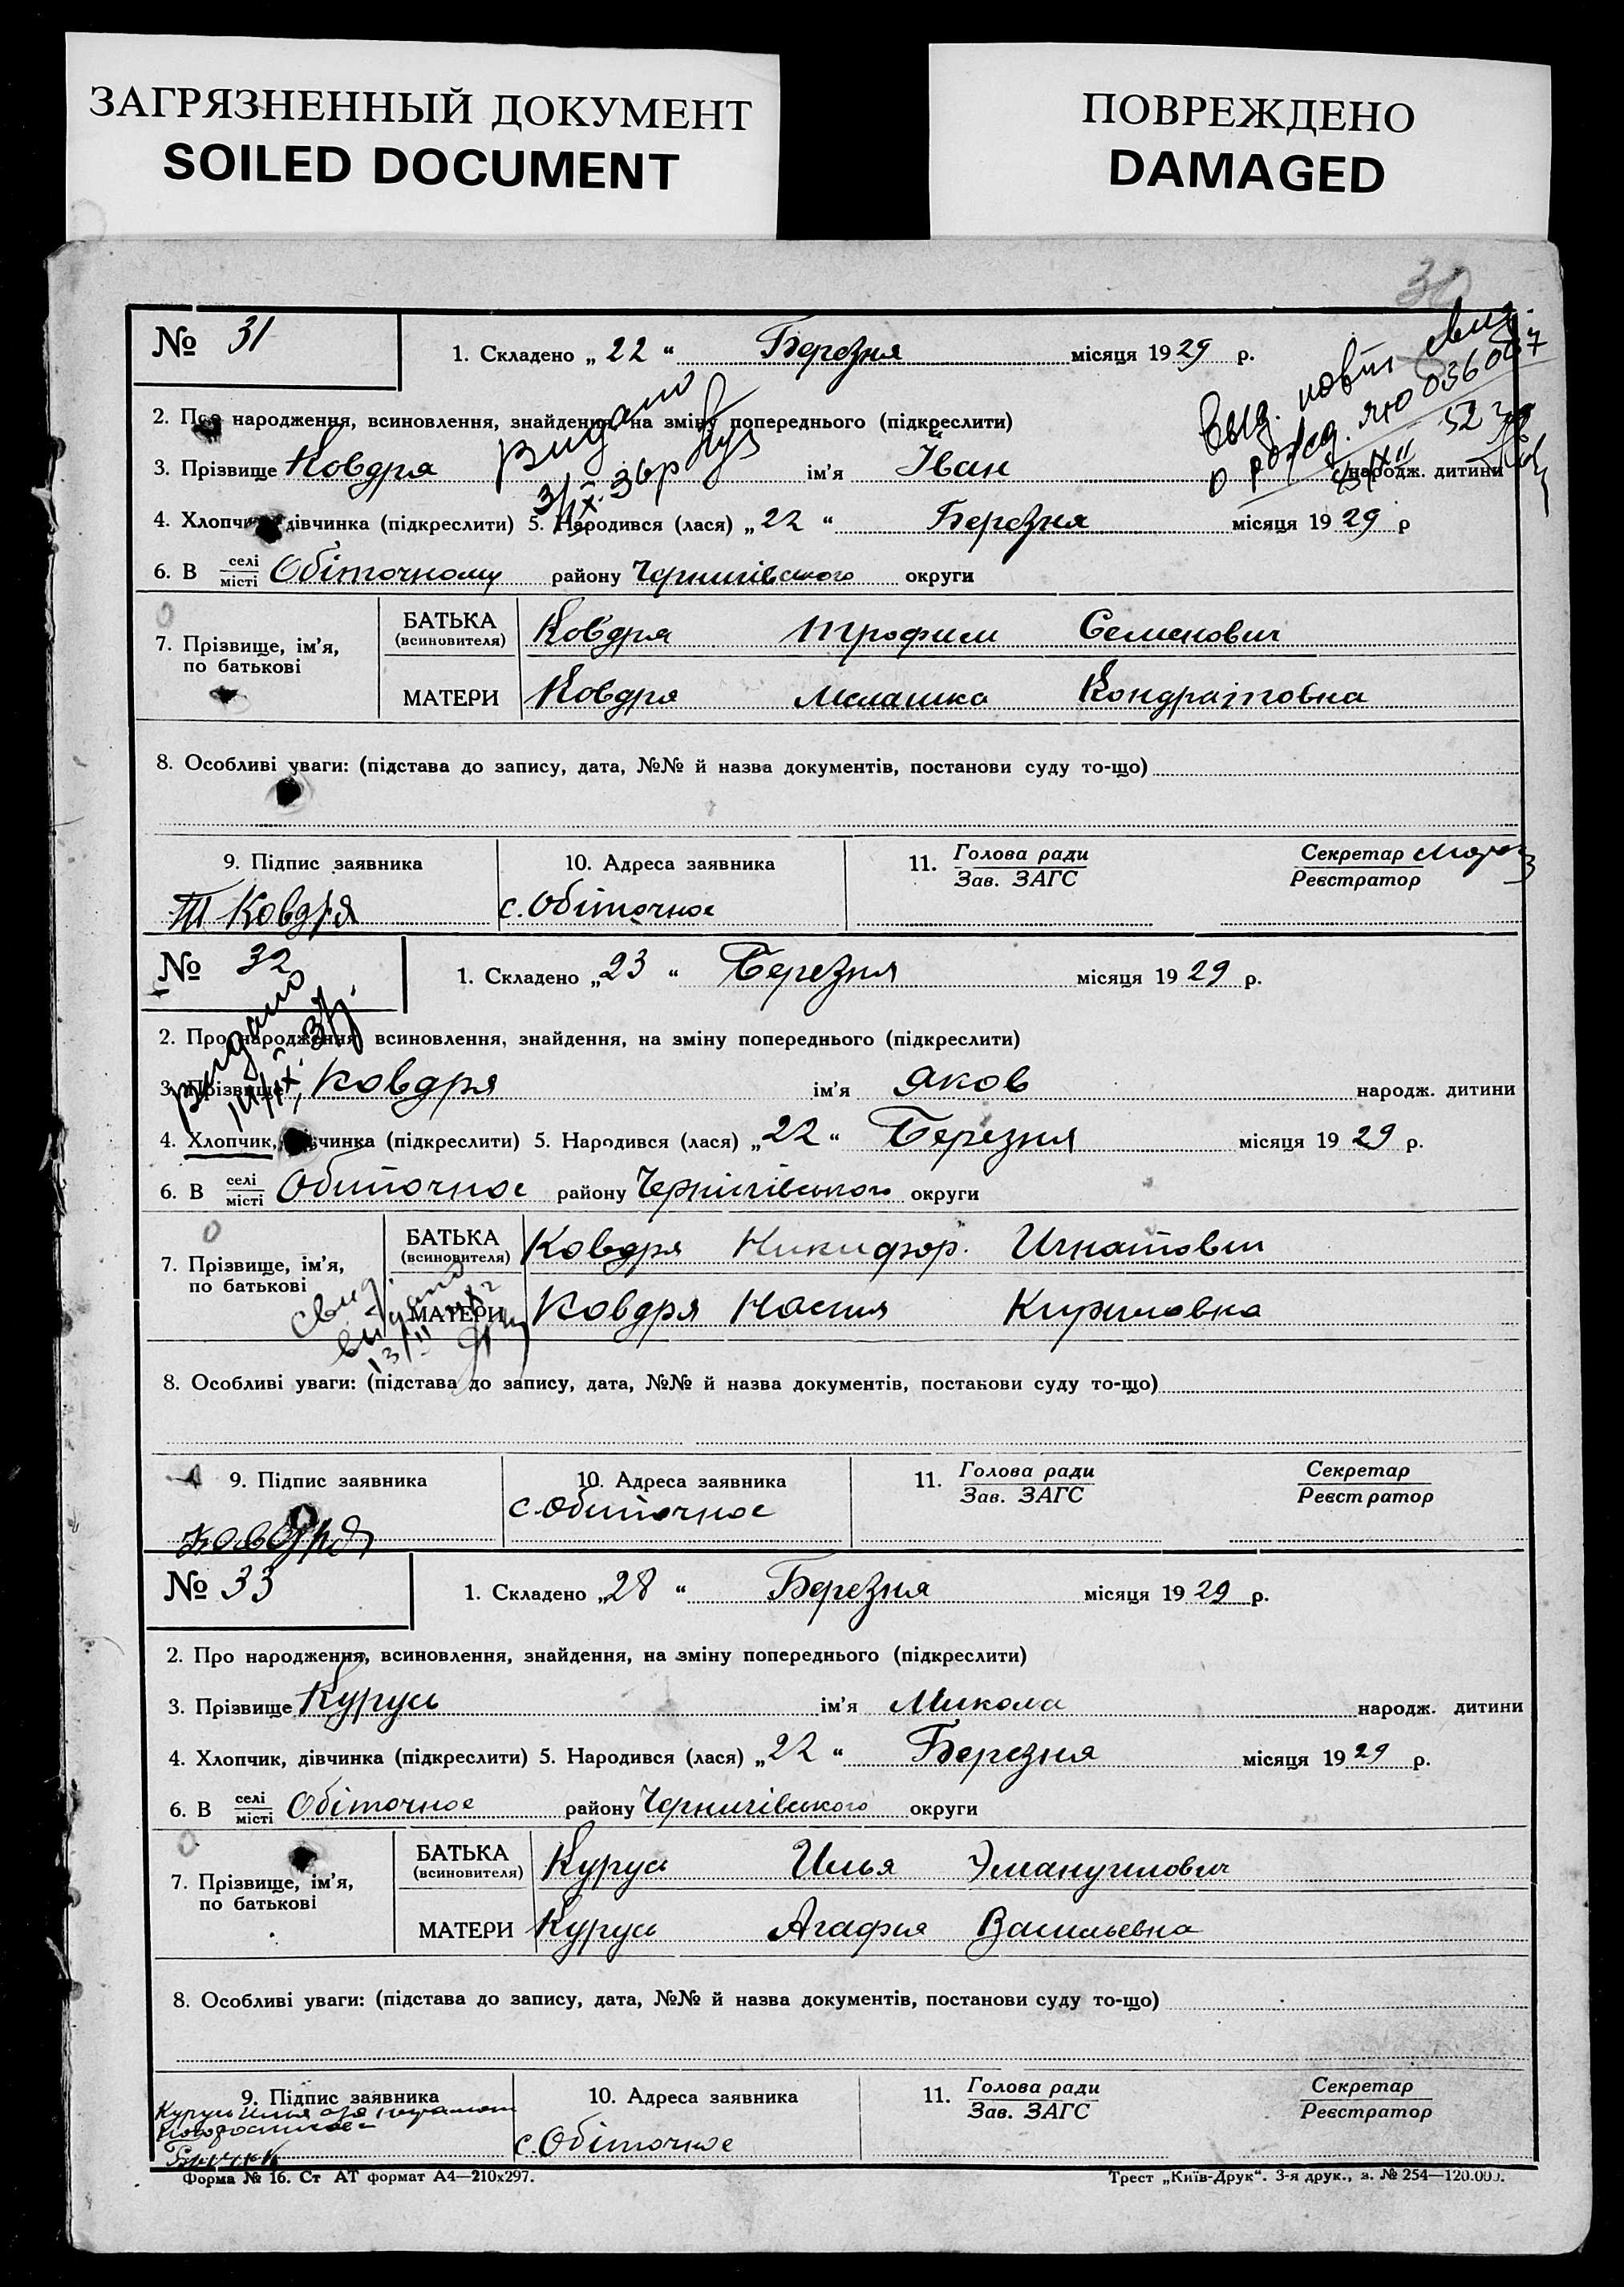 ЗАГРЯЗНЕННЫЙ ДОКУМЕНТ
SOILED DOCUMENT
ПОВРЕЖДЕНО
DAMAGED
30
№ 31
1. Складено „ 22 “ Березня місяця 1929 р.
выд. новы свид.
о рожд. ЯЮ 036087
2. Про народження, всиновлення, знайдення, на зміну попереднього (підкреслити)
Видано
3/IX. 36р
3. Прізвище Ковдря ім'я Іван народж. дитини
4. Хлопчик, дівчинка (підкреслити) 5. Народився (лася) „ 22 “ Березня місяця 1929 р
6. В селі/місті Обіточному району Чернигівського округи
7. Прізвище, ім'я, по батькові
БАТЬКА (всиновителя) Ковдря Трофим Семенович
МАТЕРИ Ковдря Мелашка Кондратовна
8. Особливі уваги: (підстава до запису, дата, №№ й назва документів, постанови суду то-що)
9. Підпис заявника 10. Адреса заявника 11. Голова ради/Зав. ЗАГС Секретар/Реєстратор Мороз
Т Ковдря с. Обіточное
№ 32
1. Складено „ 23 “ Березня місяця 1929 р.
Видано
14/IX. 37р.
2. Про народження, всиновлення, знайдення, на зміну попереднього (підкреслити)
3. Прізвище Ковдря ім'я Яков народж. дитини
4. Хлопчик, дівчинка (підкреслити) 5. Народився (лася) „ 22 “ Березня місяця 1929 р.
6. В селі/місті Обиточное району Чернигівського округи
7. Прізвище, ім'я, по батькові
БАТЬКА (всиновителя) Ковдря Никифор. Игнатович
МАТЕРИ Ковдря Настя Кириловна
свид.
видано
13/II
8. Особливі уваги: (підстава до запису, дата, №№ й назва документів, постанови суду то-що)
9. Підпис заявника 10. Адреса заявника 11. Голова ради/Зав. ЗАГС Секретар/Реєстратор
Ковдря с. Обиточное
№ 33
1. Складено „ 28 “ Березня місяця 1929 р.
2. Про народження, всиновлення, знайдення, на зміну попереднього (підкреслити)
3. Прізвище Курусь ім'я Микола народж. дитини
4. Хлопчик, дівчинка (підкреслити) 5. Народився (лася) „ 22 “ Березня місяця 1929 р.
6. В селі/місті Обіточное району Чернигівського округи
7. Прізвище, ім'я, по батькові
БАТЬКА (всиновителя) Курусь Илья Эмануилович
МАТЕРИ Курусь Агафия Васильевна
8. Особливі уваги: (підстава до запису, дата, №№ й назва документів, постанови суду то-що)
9. Підпис заявника 10. Адреса заявника 11. Голова ради/Зав. ЗАГС Секретар/Реєстратор
Курусь Илья
с. Обіточное
Форма № 16. Ст АТ формат А4—210x297.
Трест „Київ-Друк“. 3-я друк., з. № 254—120.000.